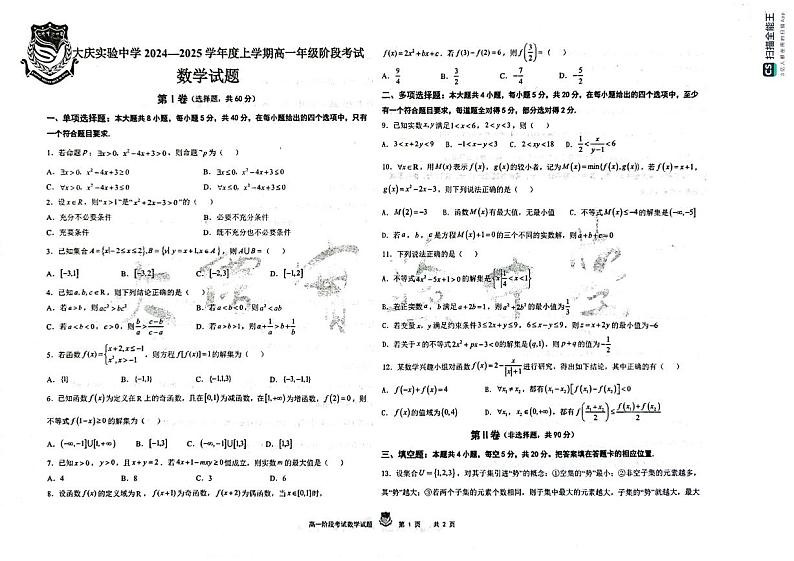 大庆实验中学 2024—2025 学年度上学期高一年级阶段考试
数学试题
第Ⅰ卷（选择题，共 60 分）
一、单项选择题：本大题共 8 小题，每小题 5 分，共 40 分，在每小题给出的四个选项中，只有
一个符合题目要求.
1．若命题 p：∃x>0，x²−4x+3>0，则命题 ¬p 为（ ）
A．∃x>0，x²−4x+3≥0 B．∃x≤0，x²−4x+3≤0
C．∀x>0，x²−4x+3≤0 D．∀x≤0，x²−4x+3≤0
2．设 x∈R，则“x>1”是“x²+2x−3>0”的（ ）
A．充分不必要条件 B．必要不充分条件
C．充要条件 D．既不充分也不必要条件
3．已知集合 A={x|−2≤x≤2},B={y|y=x+1,x∈A}，则 A∪B=（ ）
A．[−3,1] B．[−3,2] C．[−2,3] D．[−1,2]
4．已知 a,b,c∈R，则下列结论正确的是（ ）
A．若 a>b，则 ac²>bc² B．若 a<b<0，则 a²<ab
C．若 a<b<0，c>0，则 b/a>(c−b)/(c−a) D．若 a>b>1，则 a+1/a>b+1/b
5．若函数 f(x)={x+2,x≤−1 x²,x>−1，则方程 f[f(x)]=1 的解集为（ ）
A．{1} B．{−1,1} C．{−1,1,3} D．{−3,−1,1}
6．已知函数 f(x) 为定义在 R 上的奇函数，且在(0,1)为减函数，在[1,+∞)为增函数，f(2)=0，则
不等式 f(1−x)≥0 的解集为（ ）
A．(−∞,−1]∪[1,+∞) B．[−1,3] C．(−∞,−1]∪[1,3] D．[1,3]
7．已知 x>0，y>0，且 x+y=2．若 4x+1−mxy≥0 恒成立，则实数 m 的最大值是（ ）
A．4 B．8 C．3 D．6
8．设函数 f(x) 的定义域为 R，f(x+1) 为奇函数，f(x+2) 为偶函数，当 x∈[0,1] 时，
f(x)=2x²+bx+c．若 f(3)−f(2)=6，则 f(3/2)=（ ）
A．9/4 B．3/2 C．−7/4 D．−5/2
二、多项选择题：本大题共 4 小题，每小题 5 分，共 20 分，在每小题给出的四个选项中，至少
有一个符合题目要求，每道题全对得 5 分，部分选对得 2 分.
9．已知实数 x,y 满足 1<x<6，2<y<3，则（ ）
A．3<x+2y<9 B．−1<x−y<3 C．2<xy<18 D．1/2<x/(y−1)<6
10．∀x∈R，用 M(x) 表示 f(x)，g(x) 的较小者，记为 M(x)=min{f(x),g(x)}，若 f(x)=x+1，
g(x)=x²−2x−3，则下列说法正确的是（ ）
A．M(2)=−3 B．函数 M(x) 有最大值，无最小值 C．不等式 M(x)≤−4 的解集是(−∞,−5]
D．若 a，b，c 是方程 M(x)+1=0 的三个不同的实数解，则 a+b+c=0
11．下列说法正确的是（ ）
A．不等式 4x²−5x+1>0 的解集是{x|1/4<x<1}
B．若正实数 a，b 满足 a+2b=1，则 a²+2b² 的最小值为 1/3
C．若变量 x，y 满足约束条件 3≤2x+y≤9，6≤x−y≤9，则 z=x+2y 的最小值为−6
D．若关于 x 的不等式 2x²+px−3<0 的解集是(q,1)，则 p+q 的值为−1/2
12．某数学兴趣小组对函数 f(x)=2−x/(|x|+1) 进行研究，得出如下结论，其中正确的有（ ）
A．f(−x)+f(x)=4 B．∀x₁≠x₂，都有(x₁−x₂)[f(x₁)−f(x₂)]<0
C．f(x) 的值域为(0,4) D．∀x₁，x₂∈(0,+∞)，都有 f((x₁+x₂)/2)≤(f(x₁)+f(x₂))/2
第Ⅱ卷（非选择题，共 90 分）
三、填空题：本题共 4 小题，每空 5 分，共 20 分，把答案填在答题卡的相应位置.
13．设集合 U={1,2,3}，对其子集引进“势”的概念：①空集的“势”最小；②非空子集的元素越多，
其“势”越大；③若两个子集的元素个数相同，则子集中最大的元素越大，子集的“势”就越大，最大
高一阶段考试数学试题 第 1 页 共 2 页
CS 扫描全能王
3亿人都在用的扫描App